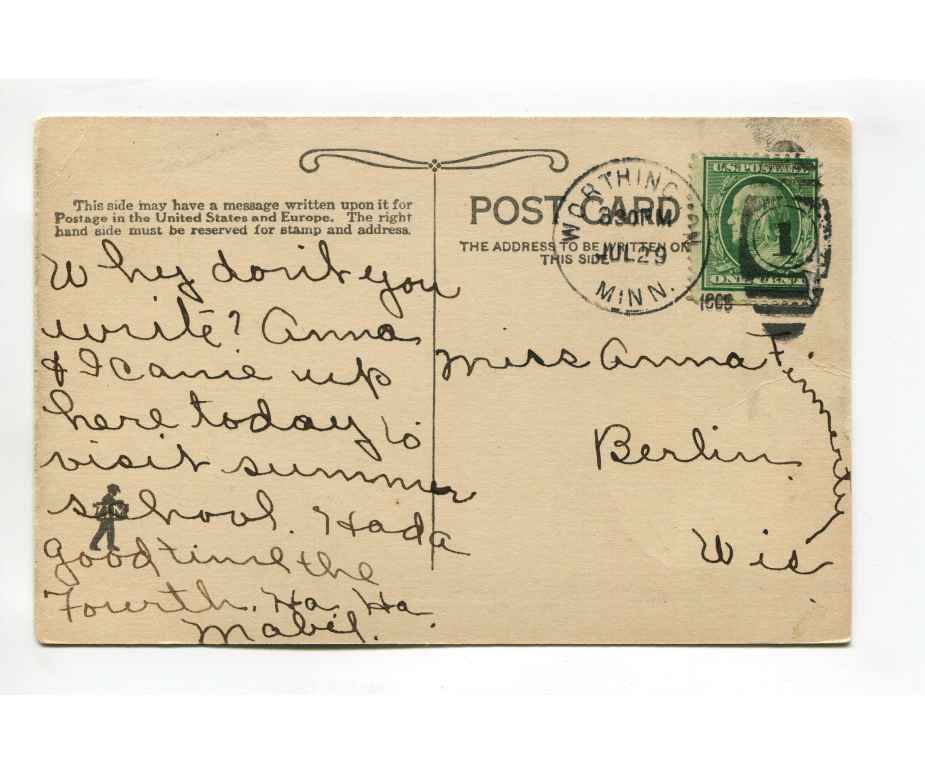 This side may have a message written upon it for
Postage in the United States and Europe. The right
hand side must be reserved for stamp and address.
Why don't you
write? Anna
& I came up
here today to
visit summer
school. Had a
good time the
Fourth. Ha Ha
Mabel.
POST CARD
THE ADDRESS TO BE WRITTEN ON
THIS SIDE
WORTHINGTON
830 M
JUL 29
MINN.
1909
U.S. POSTAGE
1
ONE CENT
Miss Anna Finnerty
Berlin
Wis